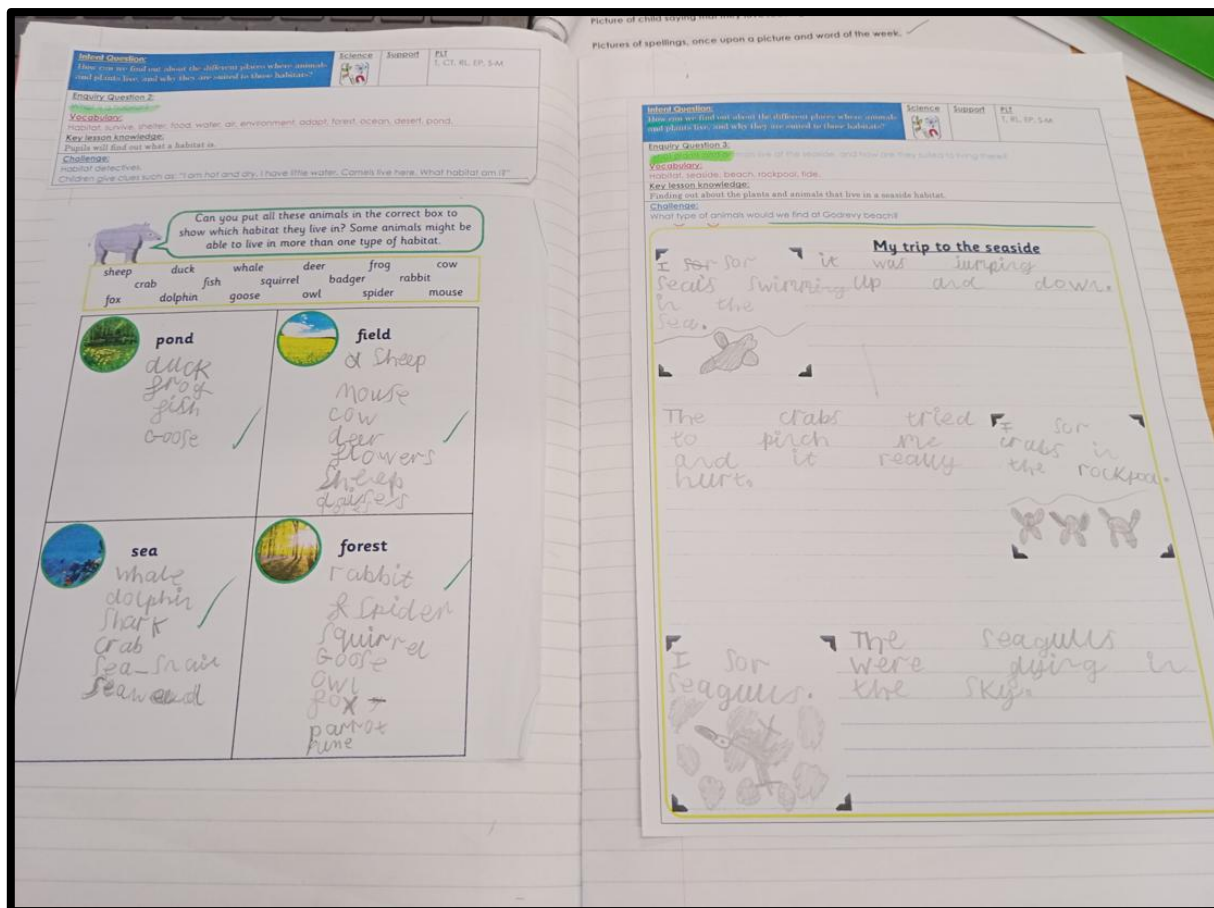 Picture of child saying that they
Pictures of spellings, once upon a picture and word of the week.
Intent Question:
How can we find out about the different places where animals
and plants live, and why they are suited to those habitats?
Science
Support
PLT
T, CT, RL, EP, S-M
Enquiry Question 2:
What is a habitat?
Vocabulary:
Habitat, survive, shelter, food, water, air, environment, adapt, forest, ocean, desert, pond.
Key lesson knowledge:
Pupils will find out what a habitat is.
Challenge:
Habitat detectives.
Children give clues such as: "I am hot and dry. I have little water. Camels live here. What habitat am I?"
Can you put all these animals in the correct box to
show which habitat they live in? Some animals might be
able to live in more than one type of habitat.
sheep duck whale deer frog cow
crab fish squirrel badger rabbit
fox dolphin goose owl spider mouse
pond
duck
frog
fish
Goose
field
sheep
mouse
cow
deer
flowers
Sheep
sea
whale
dolphin
shark
crab
sea-snail
seaweed
forest
rabbit
spider
squirrel
Goose
owl
fox
parrot
Intent Question:
How can we find out about the different places where animals
and plants live, and why they are suited to those habitats?
Science
Support
PLT
T, RL, EP, S-M
Enquiry Question 3:
live at the seaside, and how are they suited to living there?
Vocabulary:
Habitat, seaside, beach, rockpool, tide.
Key lesson knowledge:
Finding out about the plants and animals that live in a seaside habitat.
Challenge:
What type of animals would we find at Godrevy beach?
My trip to the seaside
I sor sor
seals swimming
in the
sea.
it was jumping
up and down.
The crabs tried
to pinch me
and it really
hurt.
I sor
crabs in
the rockpool.
I sor
seagulls.
The seagulls
were dying in
the sky.